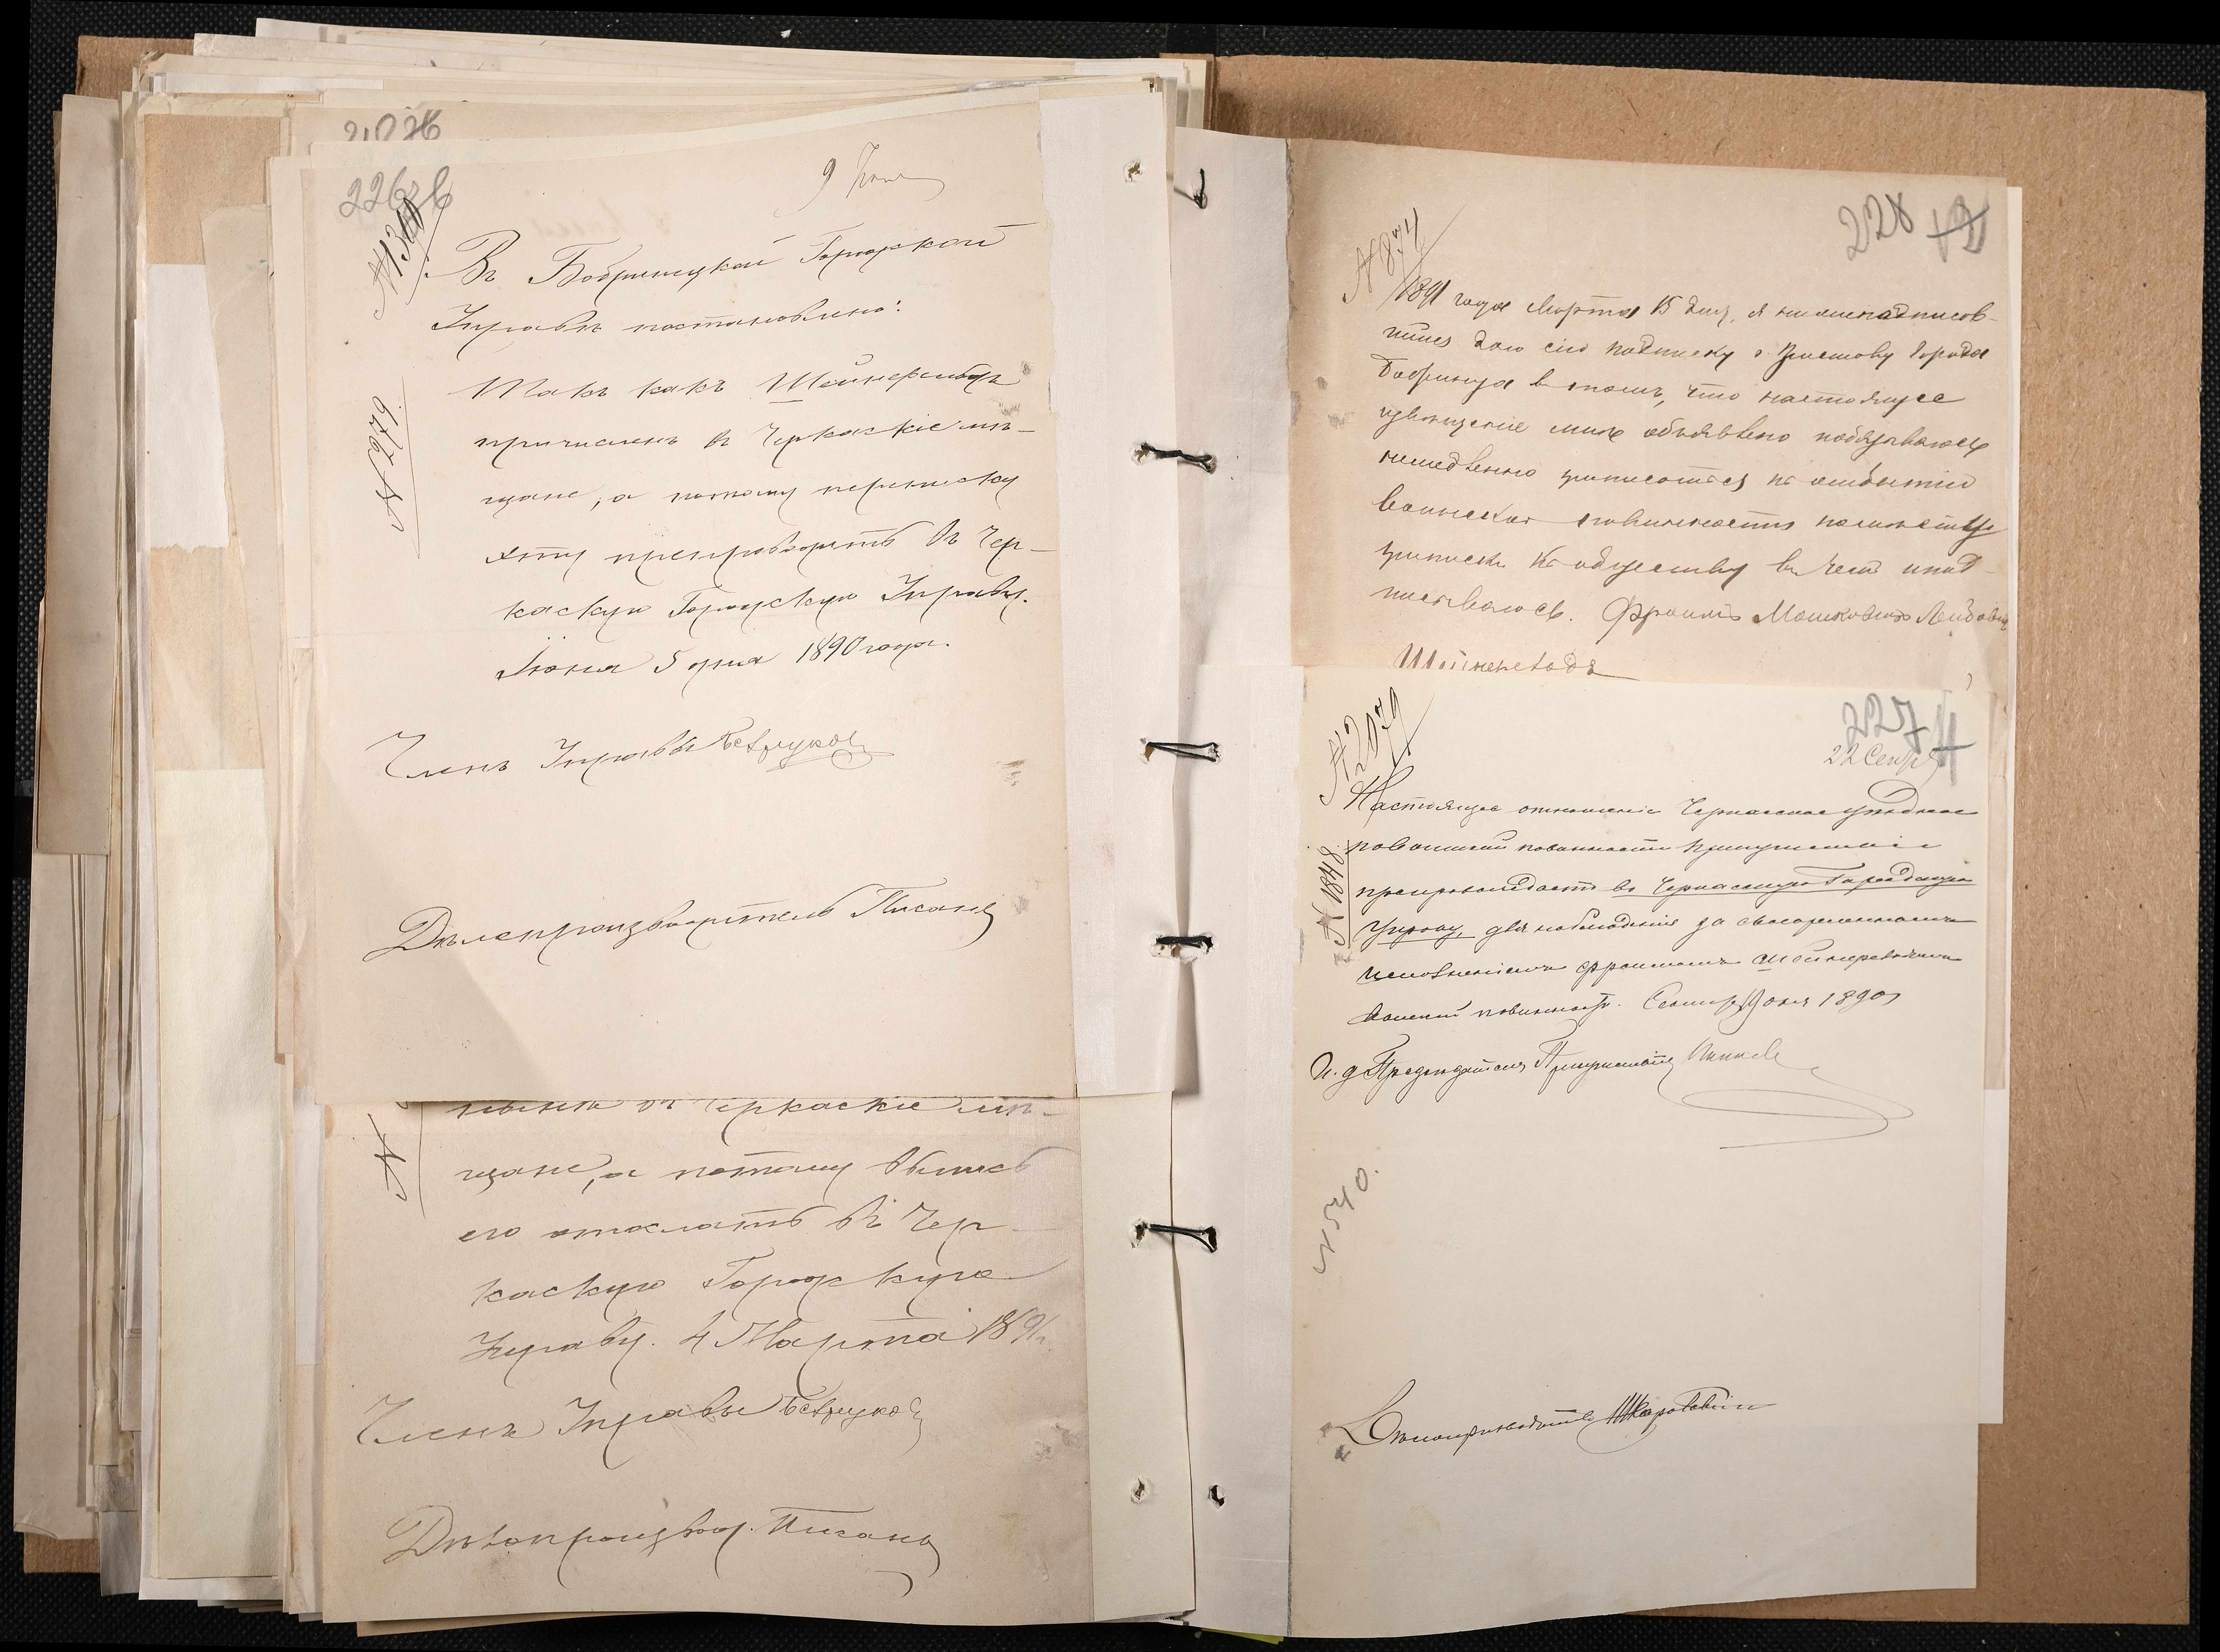 226
9 Іюня
№ 1300
Въ Бобринецкой Городской
Управѣ постановлено:
№ 1279
Такъ какъ Шейнефельдъ
причисленъ въ Черкаскіе мѣ-
щане, а потому переписку
эту препроводить въ Чер-
каскую Городскую Управу.
Іюня 5 дня 1890 года.
Членъ Управы
Дѣлопроизводитель Писаный
въ Черкаскіе мѣ-
№
щане, а потому вызовъ
его отослать въ Чер-
каскую Городскую
Управу. 4 Марта 1891 г.
Членъ Управы
Дѣлопроизвод. Писаный
228
№ 874
1891 года Марта 15 дня, я нижеподписав-
шійся даю сію подписку г. Приставу Города
Бобринца в томъ, что настоящее
извѣщеніе мнѣ объявлено и обязываюсь
немедленно приписаться къ отбытію
воинской повинности по мѣсту
приписки къ обществу в чемъ и под-
писываюсь. Фроимъ Мошковичъ Лейбовичъ
227
№ 2079
22 Сентр
Настоящее отношеніе Черкасское уѣздное
по воинской повинности присутствіе
№ 1848
препровождаетъ въ Черкасскую Городскую
Управу, для наблюденія за своевременнымъ
исполненіемъ Фроимомъ Шейнефельдомъ
воинской повинности. Сентяб. 19 дня 1890 г
И. д. Предсѣдателя Присутствія
№ 540.
Дѣлопроизводитель